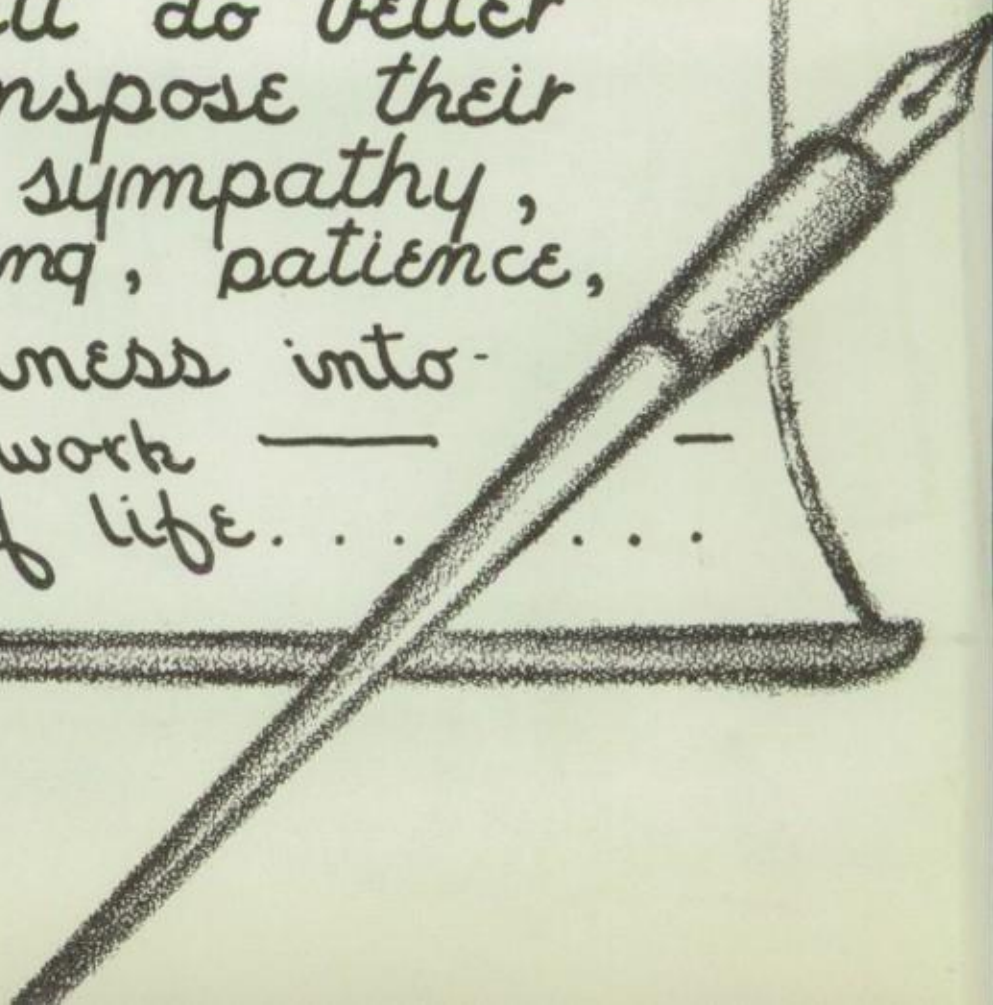 do better
nspose their
sympathy,
ng, patience,
ness into
work — -
life. . . . . .